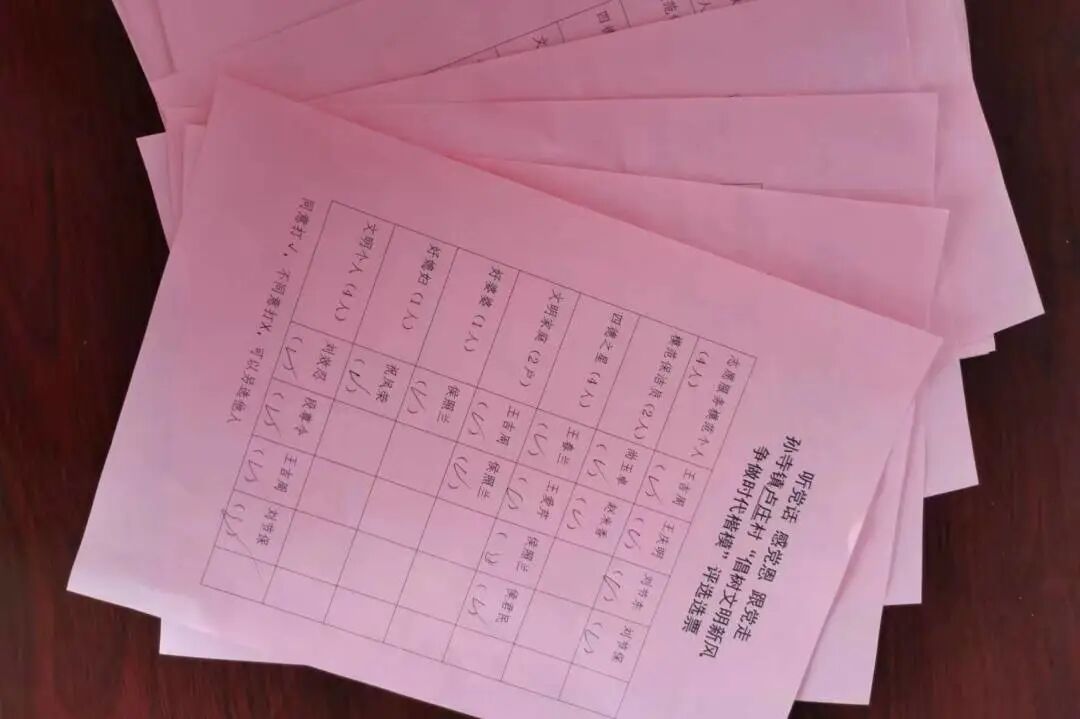 听党话 感党恩 跟党走
孙寺镇卢庄村“倡树文明新风
争做时代楷模”评选选票
志愿服务模范个人(4人) 王吉阁 王庆明 刘节东 刘节保
模范保洁员(2人) 尚玉卓 赵来香
四德之星(4人) 王春兰 王爱芹 侯照兰 侯君民
文明家庭(2户) 王吉阁 侯照兰
好婆婆(1人) 侯照兰
好媳妇(1人) 祝凤荣
文明个人(4人) 刘效忍 段春令 王吉阁 刘节保
同意打√，不同意打X，可以另选他人